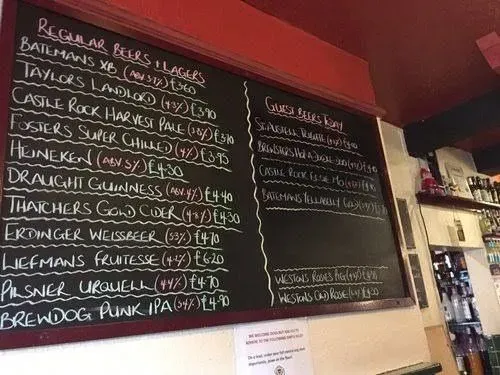 REGULAR BEERS + LAGERS
BATEMANS XB (ABV 3.7%) £3.60
TAYLORS LANDLORD (4.3%) £3.90
CASTLE ROCK HARVEST PALE (3.8%) £3.70
FOSTERS SUPER CHILLED (4%) £3.95
HEINEKEN (ABV 5%) £4.30
DRAUGHT GUINNESS (ABV 4%) £4.40
THATCHERS GOLD CIDER (4.8%) £4.30
ERDINGER WEISSBEER (5.3%) £4.70
LIEFMANS FRUITESSE (4.2%) £6.20
PILSNER URQUELL (4.4%) £4.70
BREWDOG PUNK IPA (5.4%) £4.90
GUEST BEERS TODAY
ST. AUSTELL TRIBUTE
BREWSTERS
CASTLE ROCK
BATEMANS YELLABELLY GOLD
WESTONS ROSIES PIG
WESTONS OLD ROSIE
WE WELCOME DOGS BUT